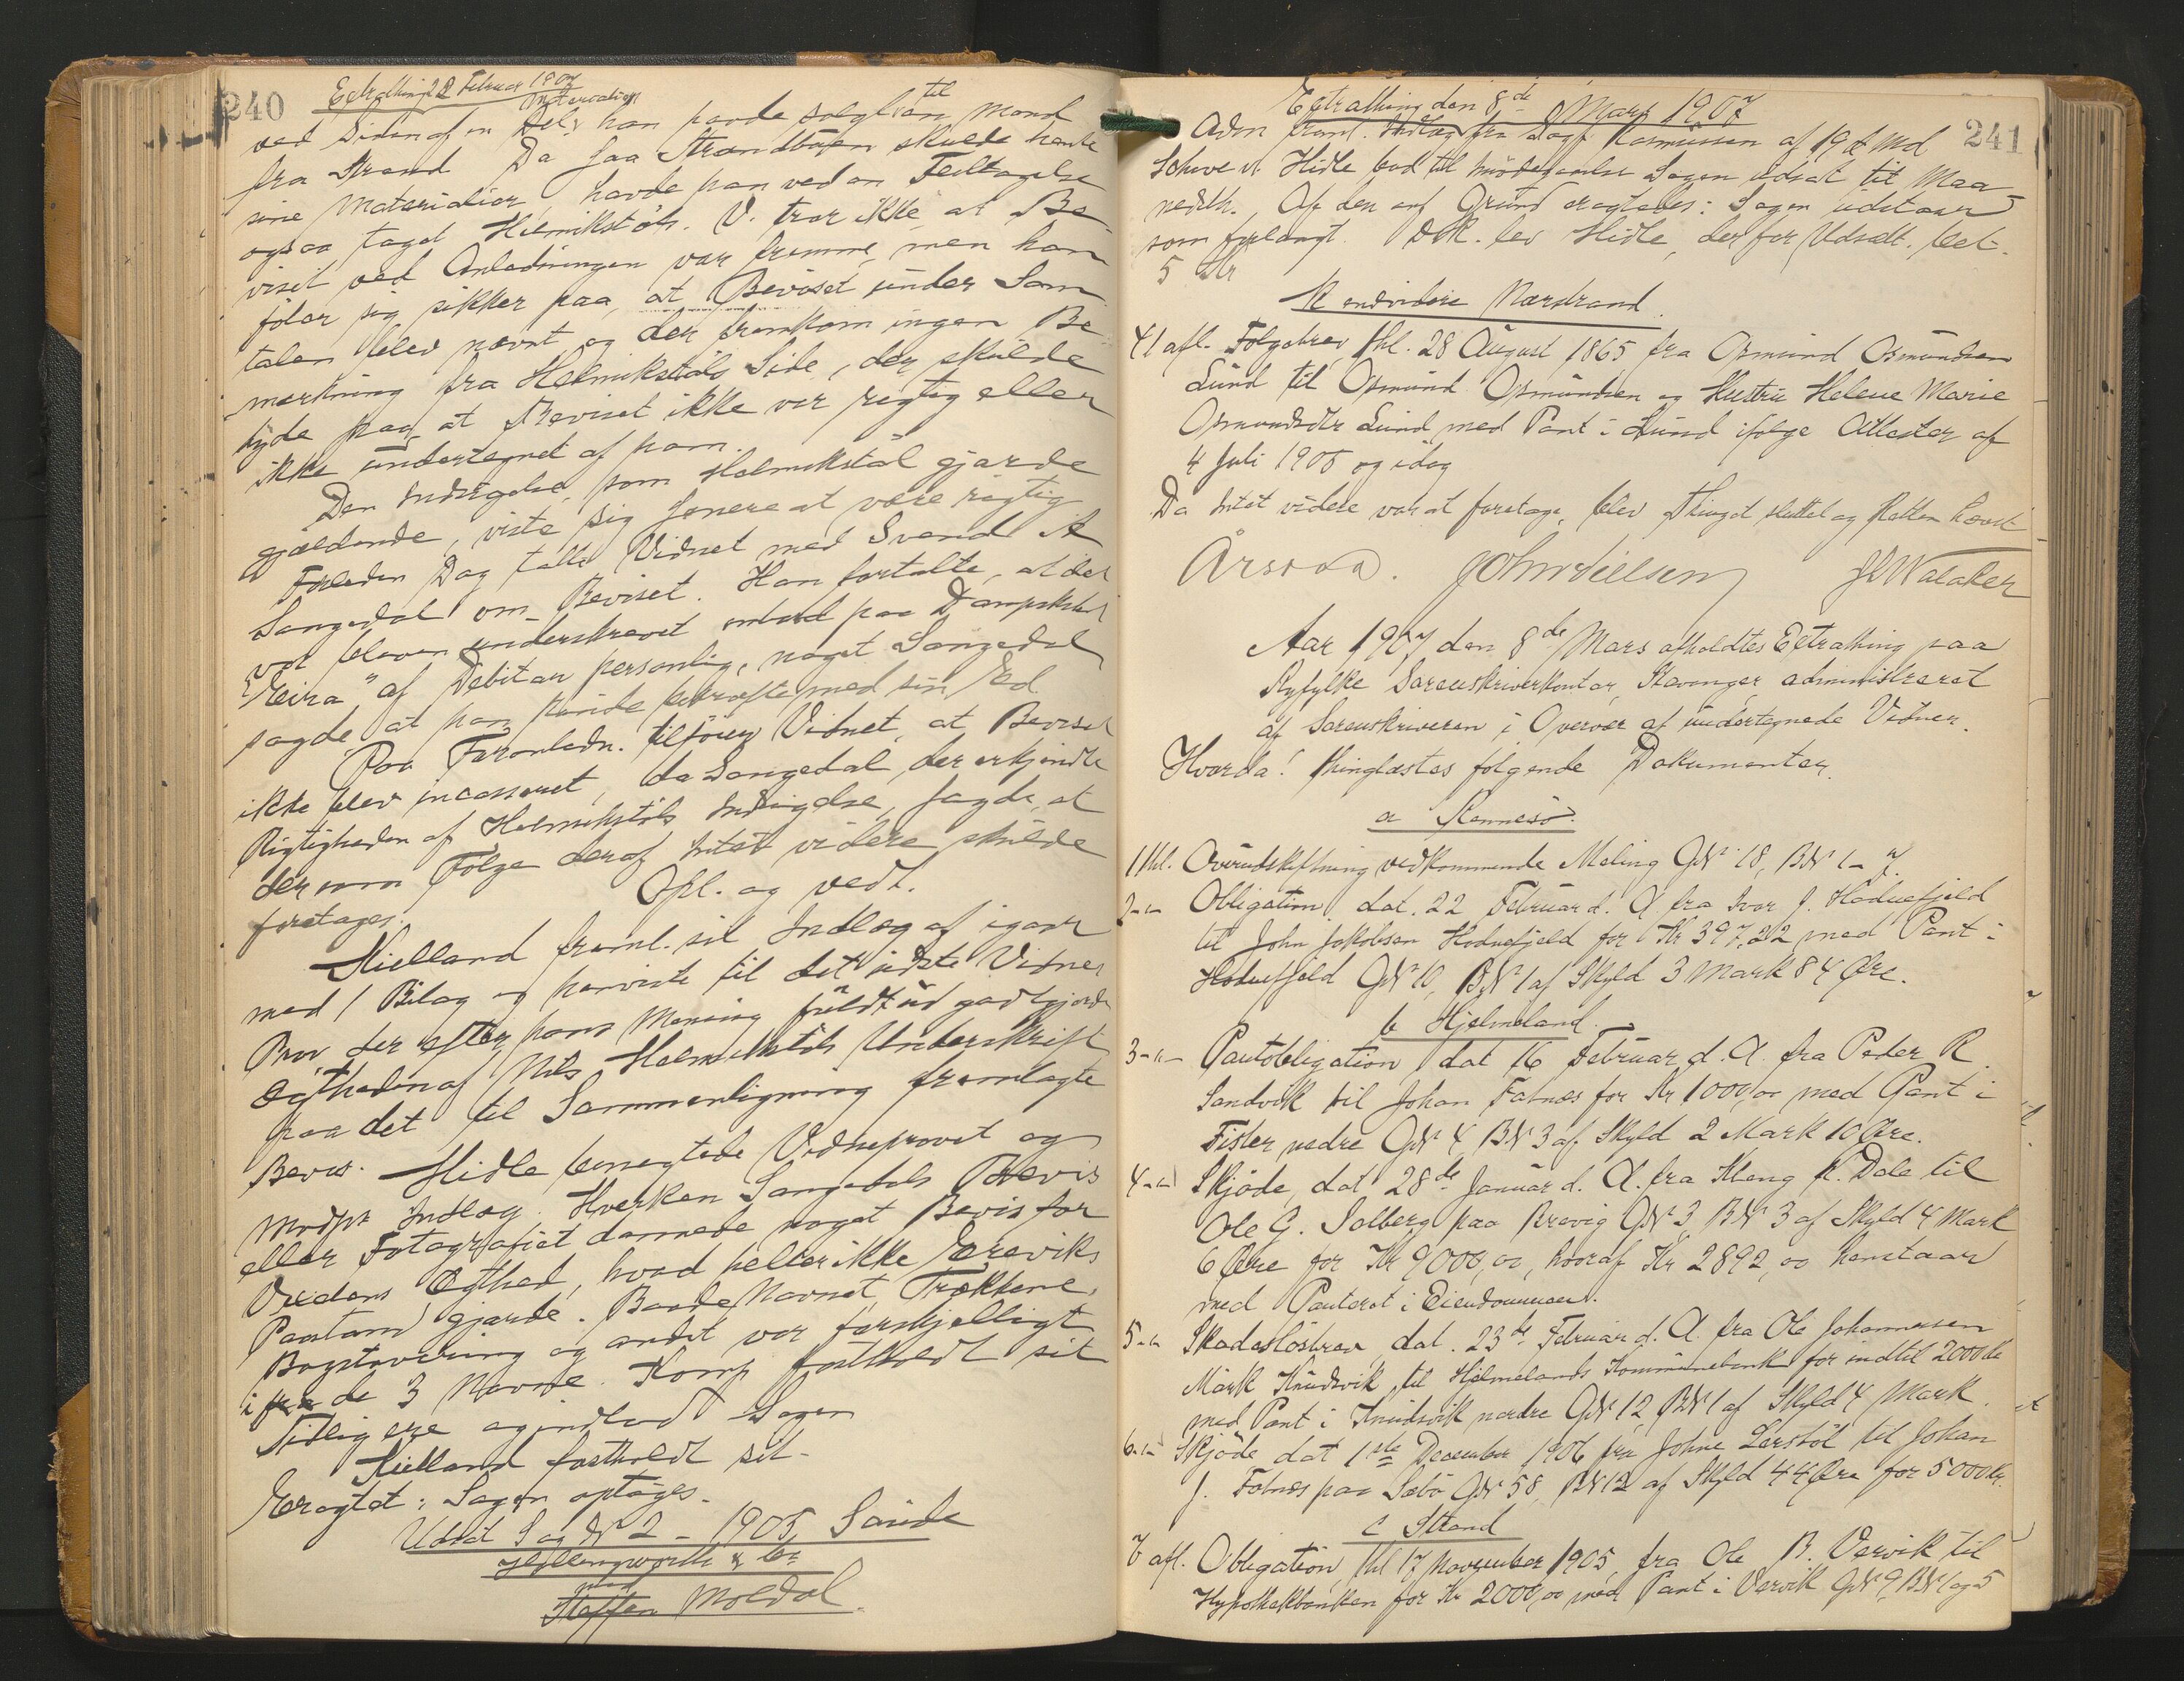 240
Extrathing 28 Februar 1907
ved Siden af en Del Materialier han havde solgt til en Mand
fra Strand Da saa Strandboen skulde hente
sine Materialier, havde han ved en Feiltagelse
ogsaa taget Helmikstøls. V. tror ikke, at Be-
viset ved Anledningen var fremme, men han
føler sig sikker paa, at Beviset under Sam
talen blev nævnt og der fremkom ingen Be
mærkning fra Helmikstøls Side, der skulde
tyde paa, at Beviset ikke var rigtig eller
ikke undertegnet af ham.
Den Indsigelse, som Helmikstøl gjorde
gjældende, viste sig senere at være rigtig
Forleden Dag talte Vidnet med Svend A
Sangedal om Beviset. Han fortalte, at det
var bleven underskrevet ombord paa Dampskibet
"Eira" af Debitor personlig, noget Sangedal
sagde, at han kunde bekræfte med sin Ed
Paa Foranledn. tilføier Vidnet, at Beviset
ikke blev incasseret, da Sangedal, der erkjendte
Rigtigheden af Helmikstøls Indsigelse, sagde, at
der som Følge deraf Intet videre skulde
foretages. Opl. og vedt.
Kielland freml. sit Indlæg af igaar
med 1 Bilag og henviste til det sidste Vidnes
Prov der efter hans Mening fuldt ud godtgjorde
Ægtheden af Nils Helmikstøls Underskrift
paa det til Sammenligning fremlagte
Bevis. Hidle benegtede Vidneprovet og
Modps Indlæg. Hverken Sangedals Bevis
eller Fotografiet dannede noget Bevis for
Vexelens Ægthed, hvad heller ikke Ereviks
Paastand gjorde. Baade Navnet, Trækkene,
Bogstavering og andet var forskjelligt
i de 3 Navne. Komp fastholdt sit
Tidligere og indlod Sagen
Kielland fastholdt sit-
Eragtet: Sagen optages.
Udsat Sag No 2 - 1905, Sauda
Hollingworth & Co
mod
Staffen Moldal.
Extrathing den 8de Mars 1907
241
Aden freml. Indlæg fra Sagf. Rasmussen af 19 d. Md
Schive v. Hidle bad til Imødegaaelse Sagen udsat til Maa
nedth. Af den anf Grund eragtedes: Sagen udstaar
som forlangt. DR. lev Hidle, der for Udsætt. bet.
5 Kr
k endvidere Nærstrand.
41 afl. Følgebrev, thl. 28 August 1865 fra Osmund Osmundsen
Lund til Osmund Osmundsen og Hustru Helene Marie
Osmundsdtr Lund med Pant i Lund ifølge Attester af
4 Juli 1905 og idag
Da Intet videre var at foretage, blev Thinget sluttet og Retten hævet
Årsvoa. John Nielsen J Walaker
Aar 1907 den 8de Mars afholdtes Extrathing paa
Ryfylke Sorenskriverkontor, Stavanger, administreret
af Sorenskriveren i Overvær af undertegnede Vidner.
Hvorda! thinglæstes følgende Dokumenter.
a Rennesø.
1 thl. Overudskiftning vedkommende Meling GNo 18, BNo 1-7.
2-"- Obligation dat. 22 Februar d. A fra Ivar J. Hodnefjeld
til John Jakobsen Hodnefjeld for Kr 397,22 med Pant i
Hodnefjeld GNo 10, BNo 1 af Skyld 3 Mark 84 Øre.
b Hjelmeland.
3-"- Pantobligation dat 16 Februar d. A. fra Peder R
Sandvik til Johan Fatnæs for Kr 1000,00 med Pant i
Fister nedre GNo 4 BNo 3 af Skyld 2 Mark 10 Øre.
4-"- Skjøde, dat 28de Januar d. A. fra Kleng K. Dale til
Ole G. Solberg paa Brevig GNo 3, BNo 3 af Skyld 4 Mark
6 Øre for Kr 9000,00, hvoraf Kr 2892,00 henstaar
med Panteret i Eiendommen.
5-"- Skadesløsbrev dat. 23de Februar d. A. fra Ole Johannesen
Mørk Knudsvik til Hjelmelands Kommunebank for indtil 2000 Kr
med Pant i Knudsvik nordre GNo 12, BNo 1 af Skyld 4 Mark.
6-"- Skjøde dat 1ste December 1906 fra Johne Lerstøl til Johan
J. Fatnæs paa Sæbø GNo 58, BNo 12 af Skyld 44 Øre for 5000 Kr.
c Strand
7 afl. Obligation, thl 17 November 1905, fra Ole B. Vervik til
Hypothekbanken for Kr 2000,00 med Pant i Vervik GNo 9, BNo 1 og 5